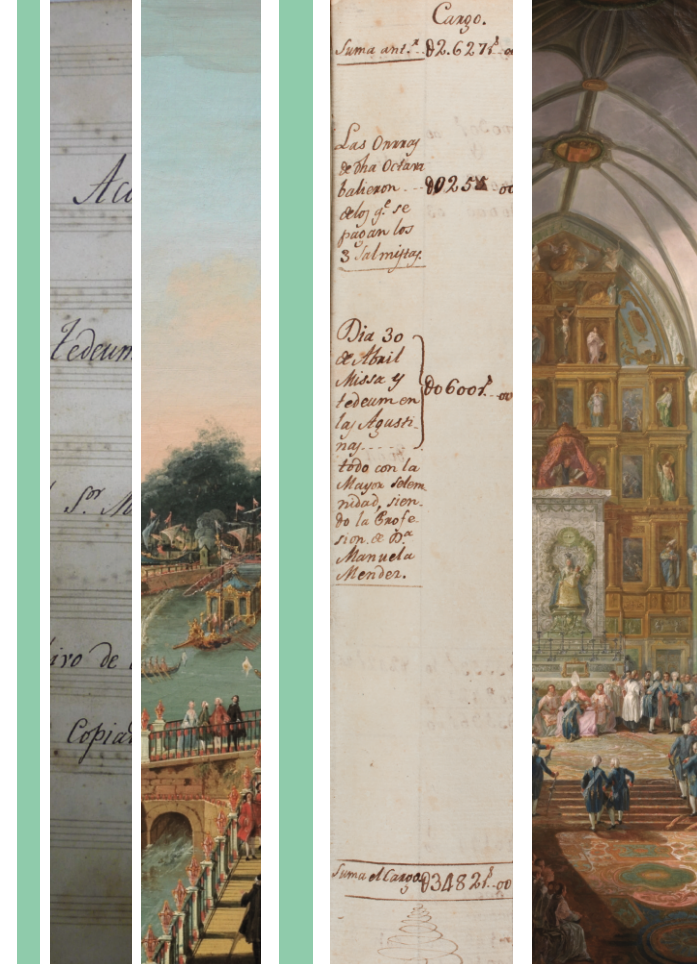 Ac
Tedeum
Sor M
ivo de
Copia
Cargo.
Suma ant.a 02.627rs 00
Las Onrras
de dha Octava
balieron
delos q.e se
pagan los
3 Salmistas.
Dia 30
de Abril
Missa y
tedeum en
las Agusti-
nas
00600rs 00
todo con la
Mayor Solem
nidad, sien-
do la Profe-
sion de D.a
Manuela
Mendez.
Suma el Cargo 03482rs 00